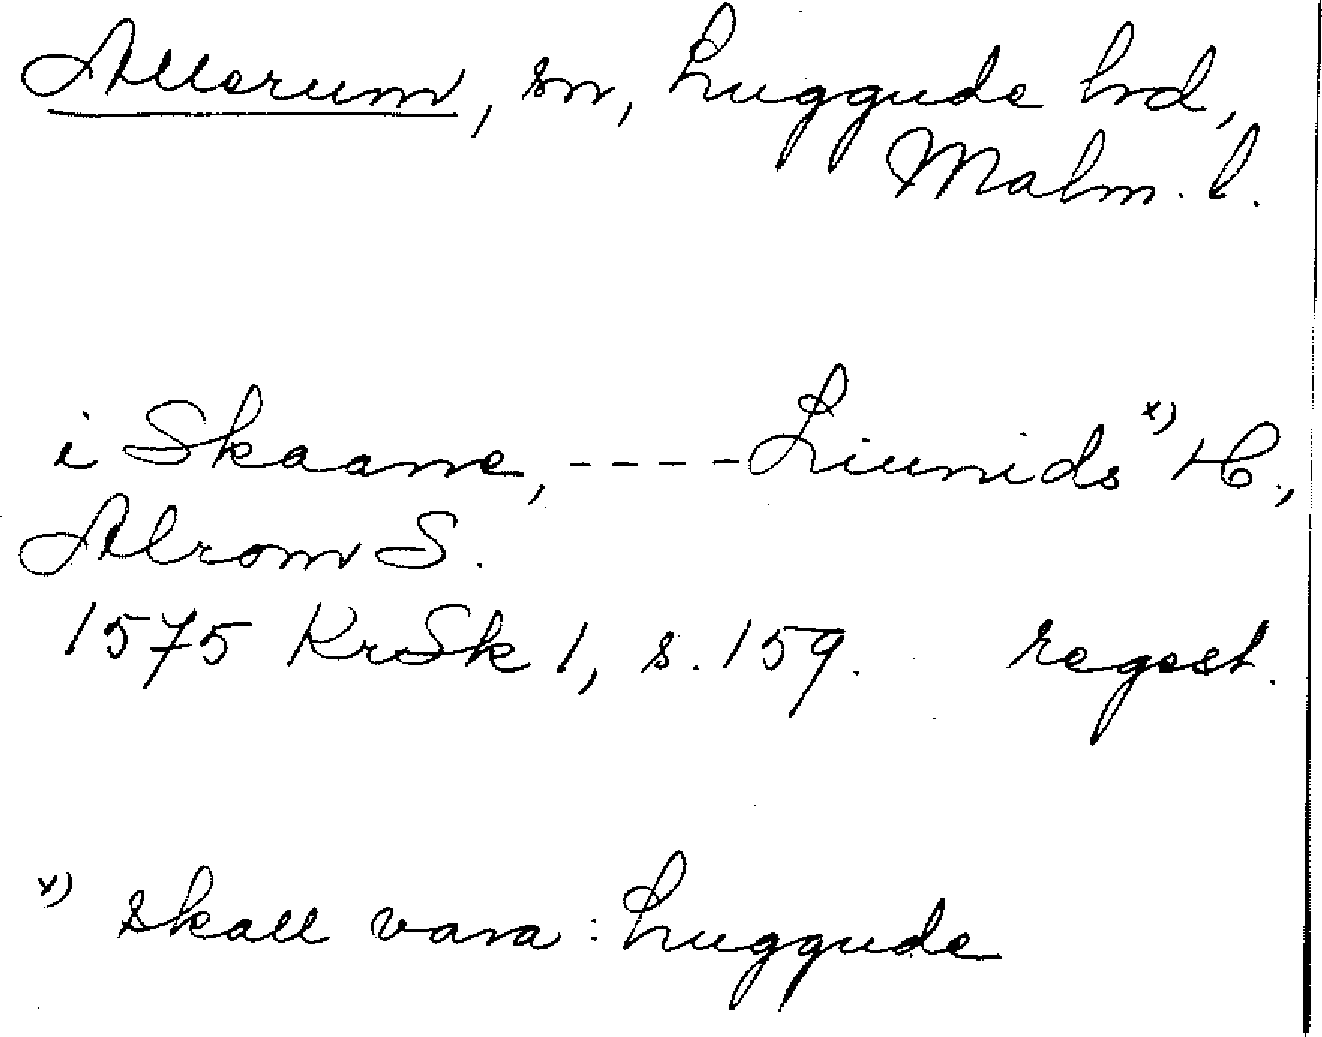 Allerum, sn, Luggude hrd,
Malm. l.
i Skaane, ---- Liunids x) H.,
Alrom S.
1575 KrSk 1, s. 159. regest.
x) skall vara: Luggude